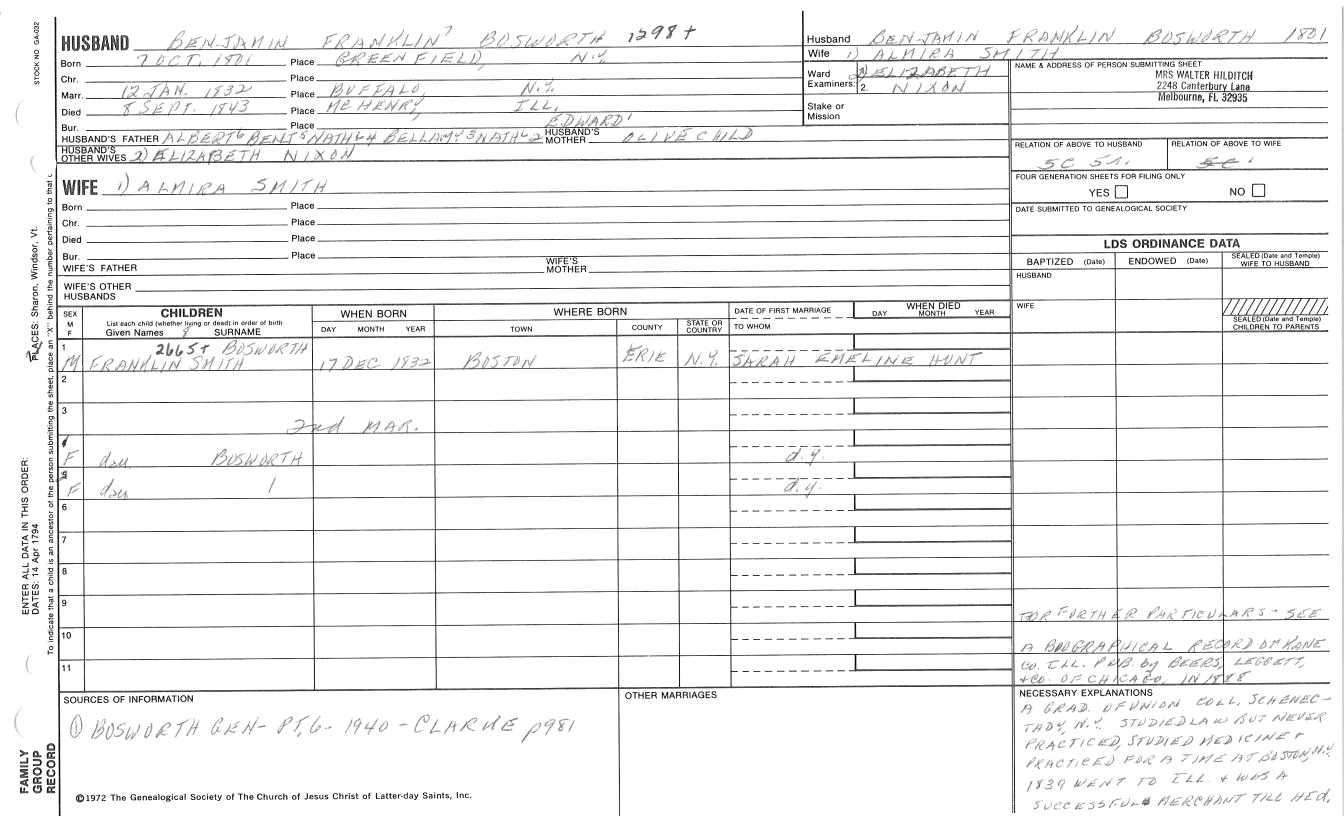 STOCK NO. GA-032
HUSBAND BENJAMIN FRANKLIN 7 BOSWORTH 1298+
Born 7 OCT. 1801 Place GREENFIELD, N.Y.
Chr. Place
Marr. 12 JAN. 1832 Place BUFFALO, N.Y.
Died 8 SEPT. 1843 Place MCHENRY, ILL.
Bur. Place EDWARD 1
HUSBAND'S FATHER ALBERT 6 BENJ 5 NATHL 4 BELLAMY 3 NATHL 2 HUSBAND'S MOTHER OLIVE CHILD
HUSBAND'S OTHER WIVES 2) ELIZABETH NIXON
Husband BENJAMIN FRANKLIN BOSWORTH 1801
Wife 1) ALMIRA SMITH
Ward 2) ELIZABETH
Examiners: 2. NIXON
Stake or Mission
NAME & ADDRESS OF PERSON SUBMITTING SHEET
MRS WALTER HILDITCH
2248 Canterbury Lane
Melbourne, FL 32935
RELATION OF ABOVE TO HUSBAND RELATION OF ABOVE TO WIFE
5C
FOUR GENERATION SHEETS FOR FILING ONLY
YES NO
DATE SUBMITTED TO GENEALOGICAL SOCIETY
WIFE 1) ALMIRA SMITH
Born Place
Chr. Place
Died Place
Bur. Place
WIFE'S FATHER WIFE'S MOTHER
WIFE'S OTHER HUSBANDS
LDS ORDINANCE DATA
BAPTIZED (Date) ENDOWED (Date) SEALED (Date and Temple) WIFE TO HUSBAND
HUSBAND
WIFE
SEALED (Date and Temple) CHILDREN TO PARENTS
SEX M F CHILDREN List each child (whether living or dead) in order of birth Given Names 8 SURNAME
WHEN BORN DAY MONTH YEAR
WHERE BORN TOWN COUNTY STATE OR COUNTRY
DATE OF FIRST MARRIAGE TO WHOM
WHEN DIED DAY MONTH YEAR
1 2665+ BOSWORTH
M FRANKLIN SMITH 17 DEC 1832 BOSTON ERIE N.Y. SARAH EMELINE HUNT
2
3
2nd MAR.
F dau BOSWORTH d.y.
F dau d.y.
6
7
8
9
10
11
FOR FURTHER PARTICULARS - SEE
A BIOGRAPHICAL RECORD OF KANE
CO. ILL. PUB. by BEERS, LEGGETT,
+ CO. OF CHICAGO, IN 1888
SOURCES OF INFORMATION
① BOSWORTH GEN - PT, 6 - 1940 - CLARKE p981
OTHER MARRIAGES
NECESSARY EXPLANATIONS
A GRAD. OF UNION COLL. SCHENEC-
TADY, N.Y. STUDIED LAW BUT NEVER
PRACTICED, STUDIED MEDICINE +
PRACTICED FOR A TIME AT BOSTON, N.Y.
1839 WENT TO ILL. + WAS A
SUCCESSFUL MERCHANT TILL HE d.
©1972 The Genealogical Society of The Church of Jesus Christ of Latter-day Saints, Inc.
FAMILY
GROUP
RECORD
ENTER ALL DATA IN THIS ORDER:
DATES: 14 Apr 1794
PLACES: Sharon, Windsor, Vt.
To indicate that a child is an ancestor of the person submitting the sheet, place an "X" behind the number pertaining to that c